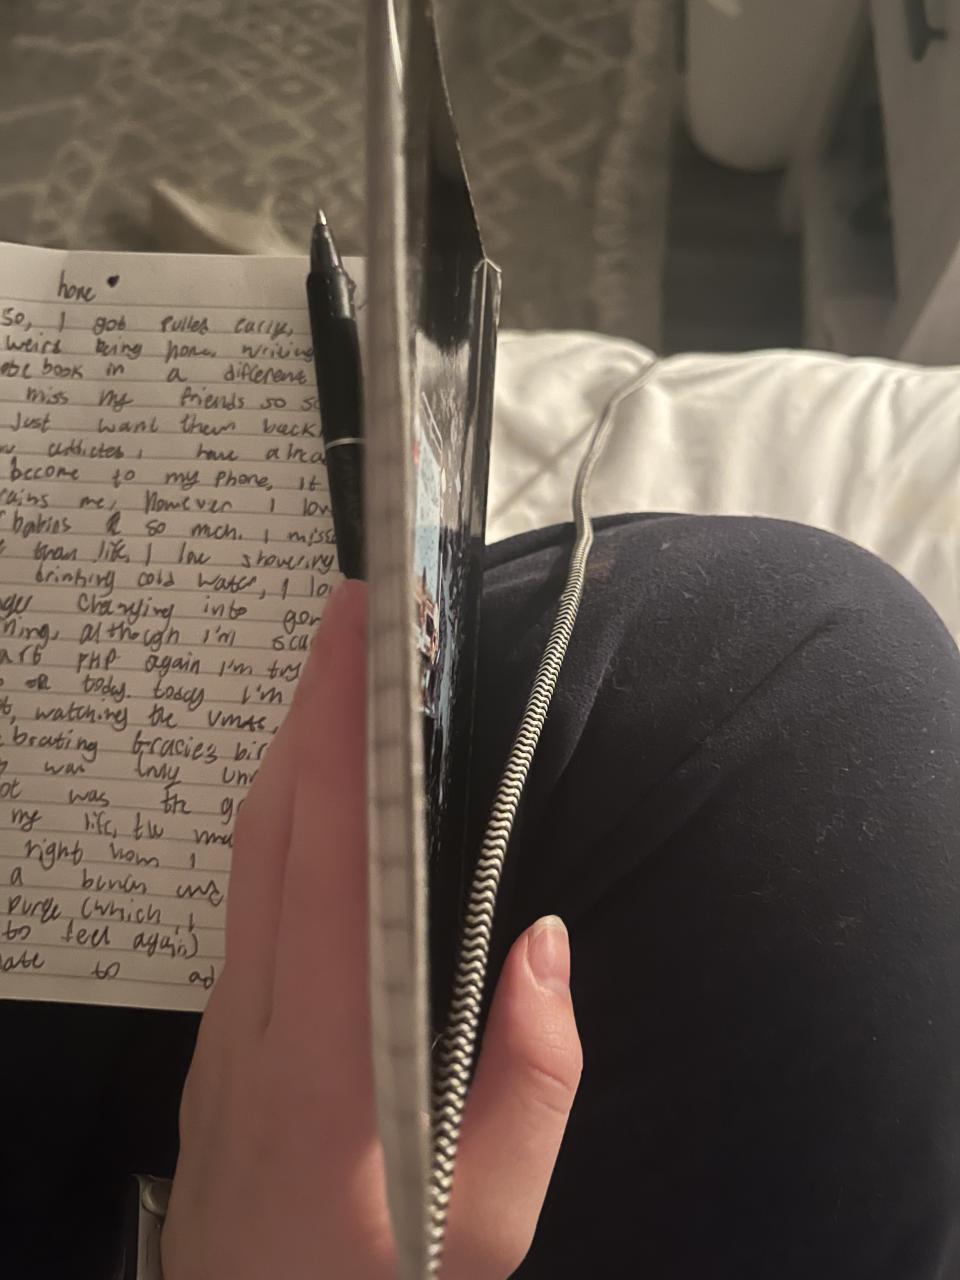 home
so, I got pulled early,
weird being home, writing
book in a different
miss my friends so
Just want them back
addicted I have alrea
become to my phone, it
ains me, however I lov
babies & so much. I miss
than life, I love showering
drinking cold water, I lo
changing into
ning, although I'm sca
art PHP again I'm try
or today. today I'm
watching the vmas,
brating Gracies bir
was truly un
ot was the g
my life, the
right now I
a bunch and
purge (which I
to feel again)
ate to ad